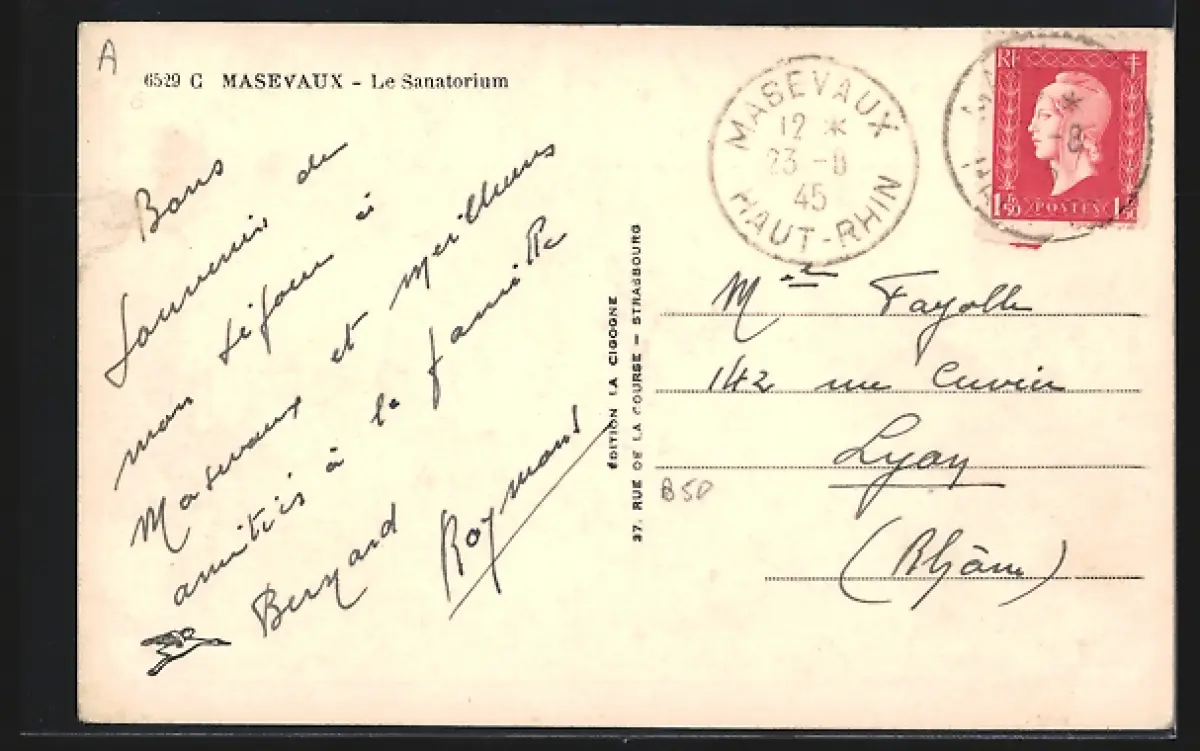 A
6529 C MASEVAUX – Le Sanatorium
Bons
souvenirs de
mon séjour à
Masevaux et meilleurs
amitiés à la famille
Bernard
Raymond
MASEVAUX
12 *
23 -8
45
HAUT-RHIN
RF
1F50 POSTES 1F50
ÉDITION LA CIGOGNE
37, RUE DE LA COURSE – STRASBOURG
Fayolle
142 rue Cuvier
Lyon
(Rhône)
B50